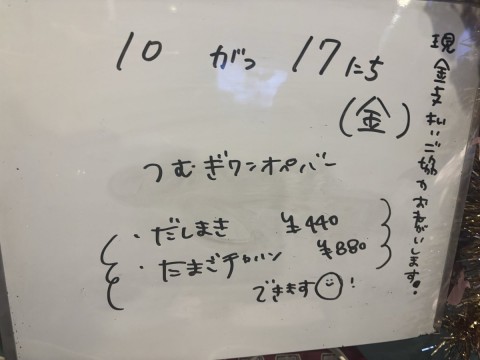 10 がつ 17にち
(金)
つむぎワンオペバー
・だしまき ¥440
・たまごチャハン ¥880
できます!
現金支払いご協力おねがいします!